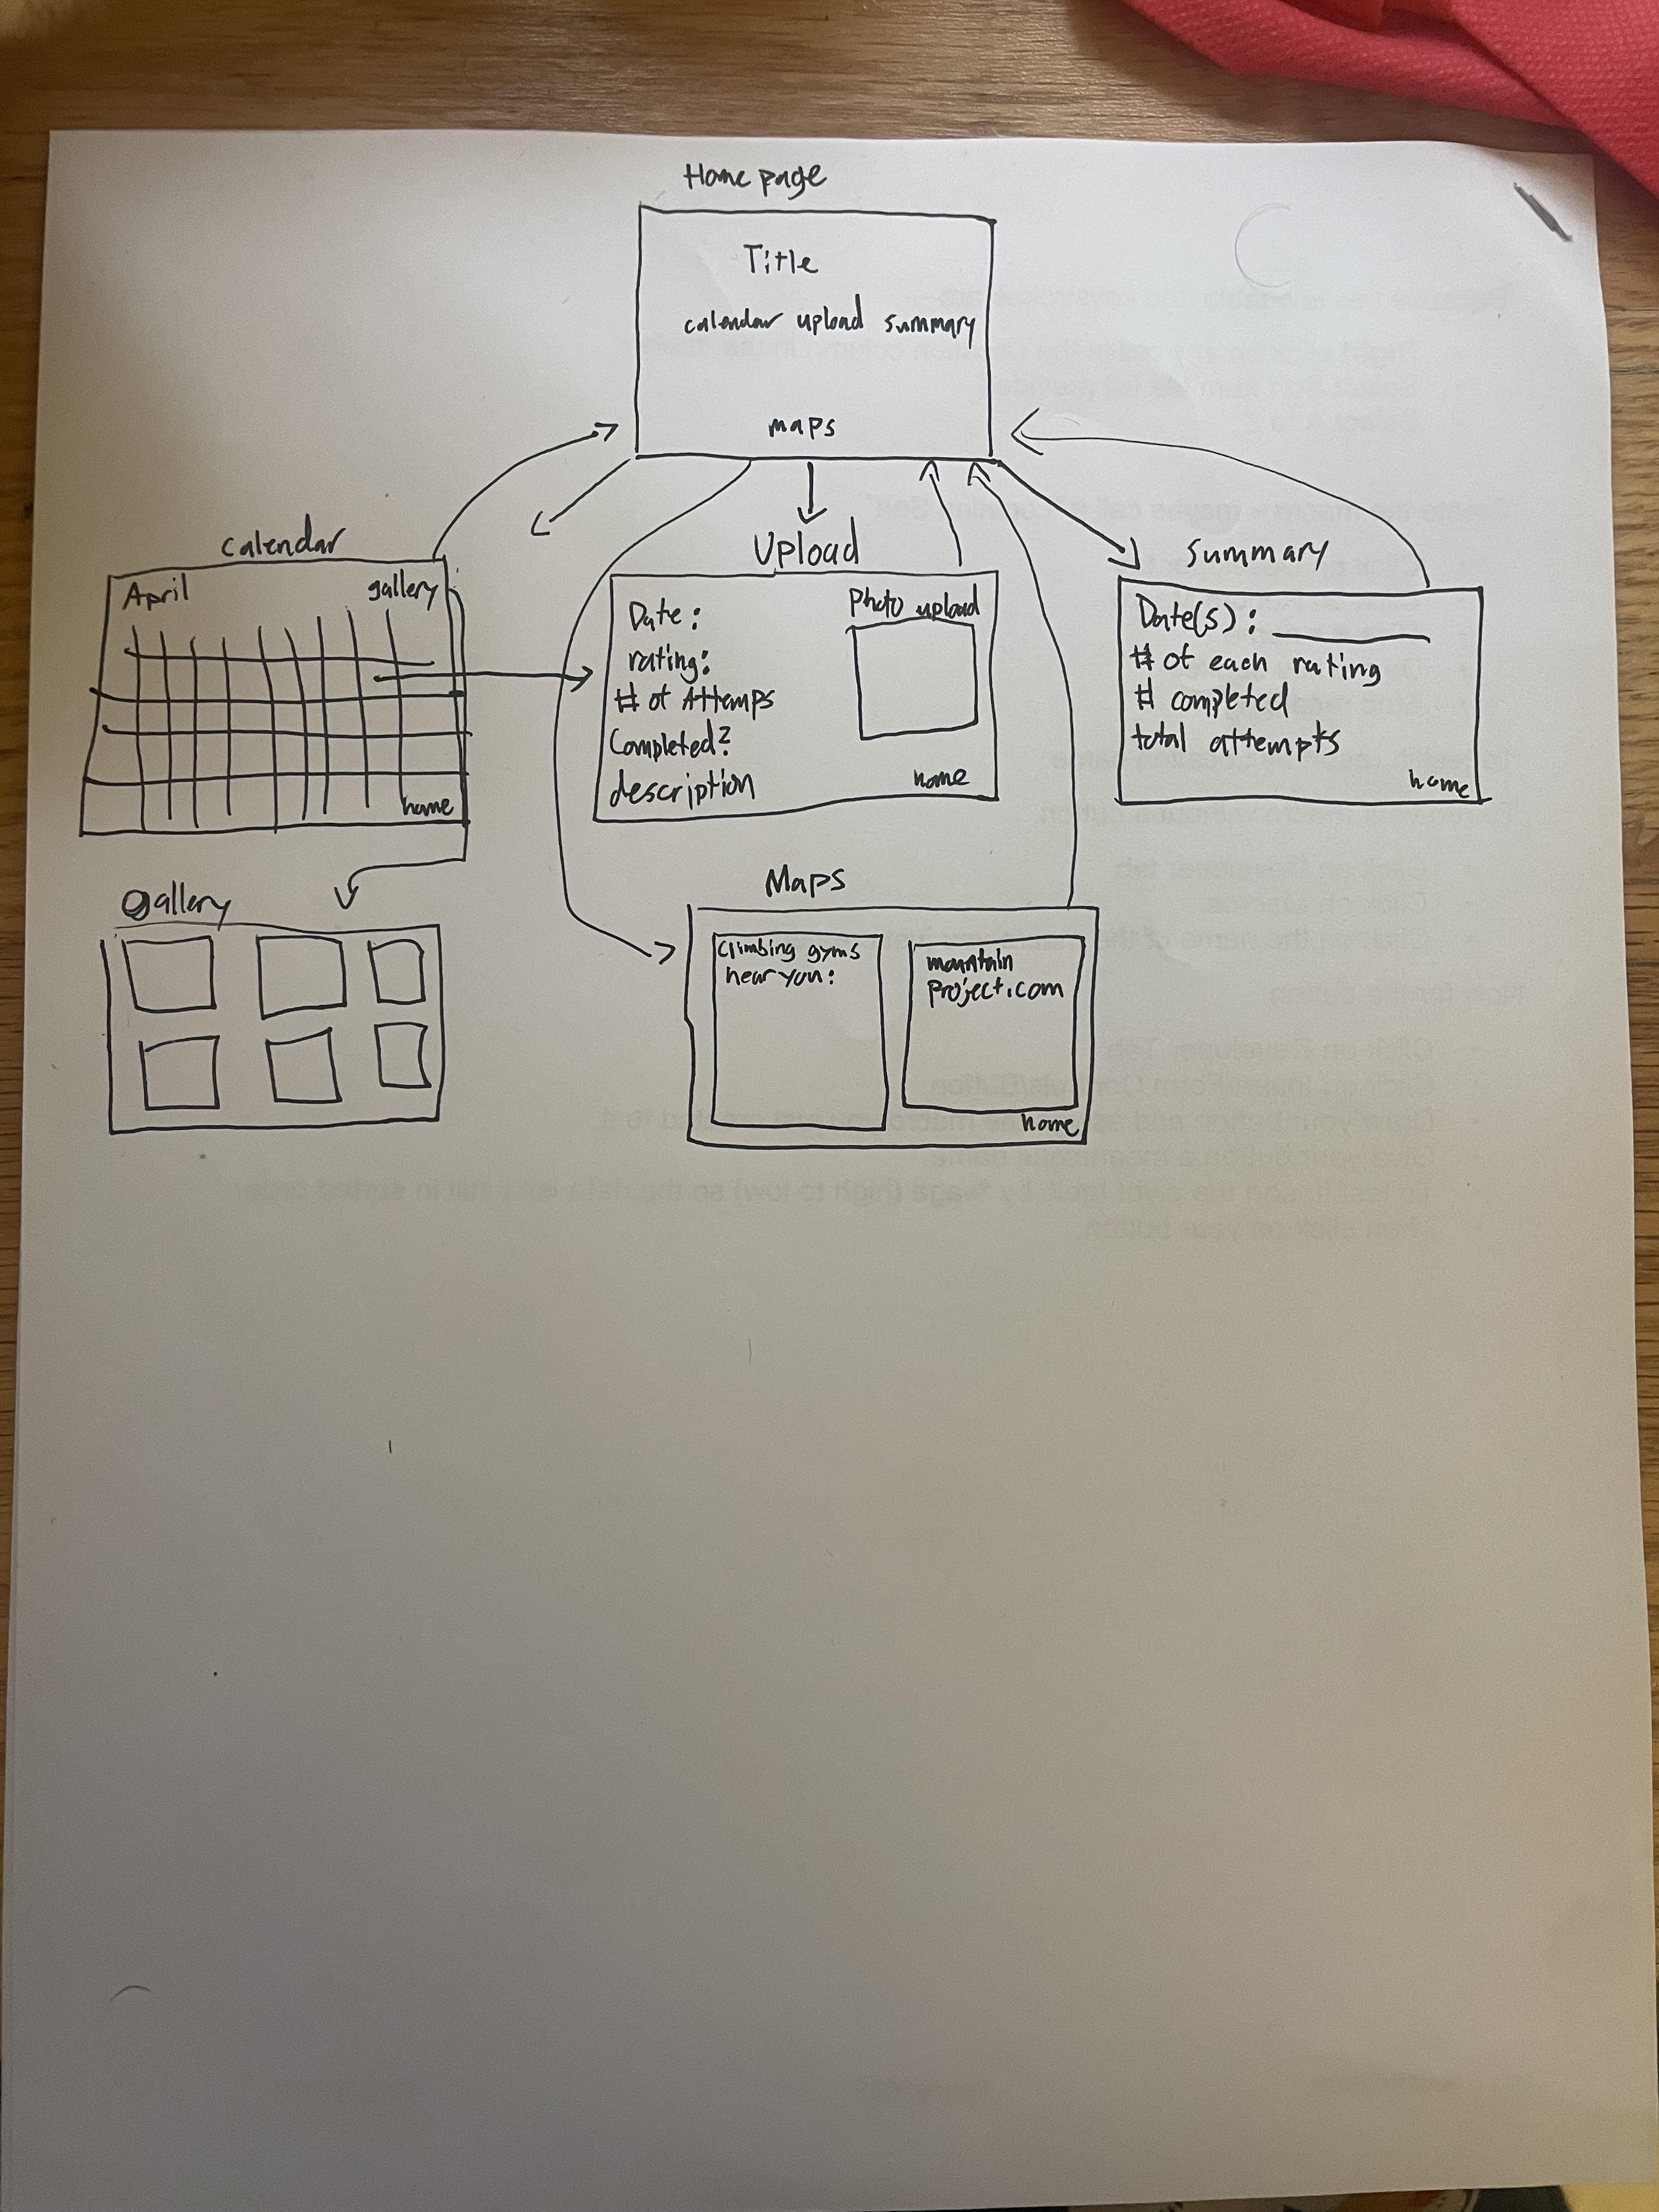 Home page
Title
calendar upload summary
maps
Calendar
April
gallery
home
Upload
Date:
rating:
# of Attemps
Completed?
description
Photo upload
home
Summary
Date(s):
# of each rating
# completed
total attempts
home
gallery
Maps
Climbing gyms
near you:
mountain
project.com
home